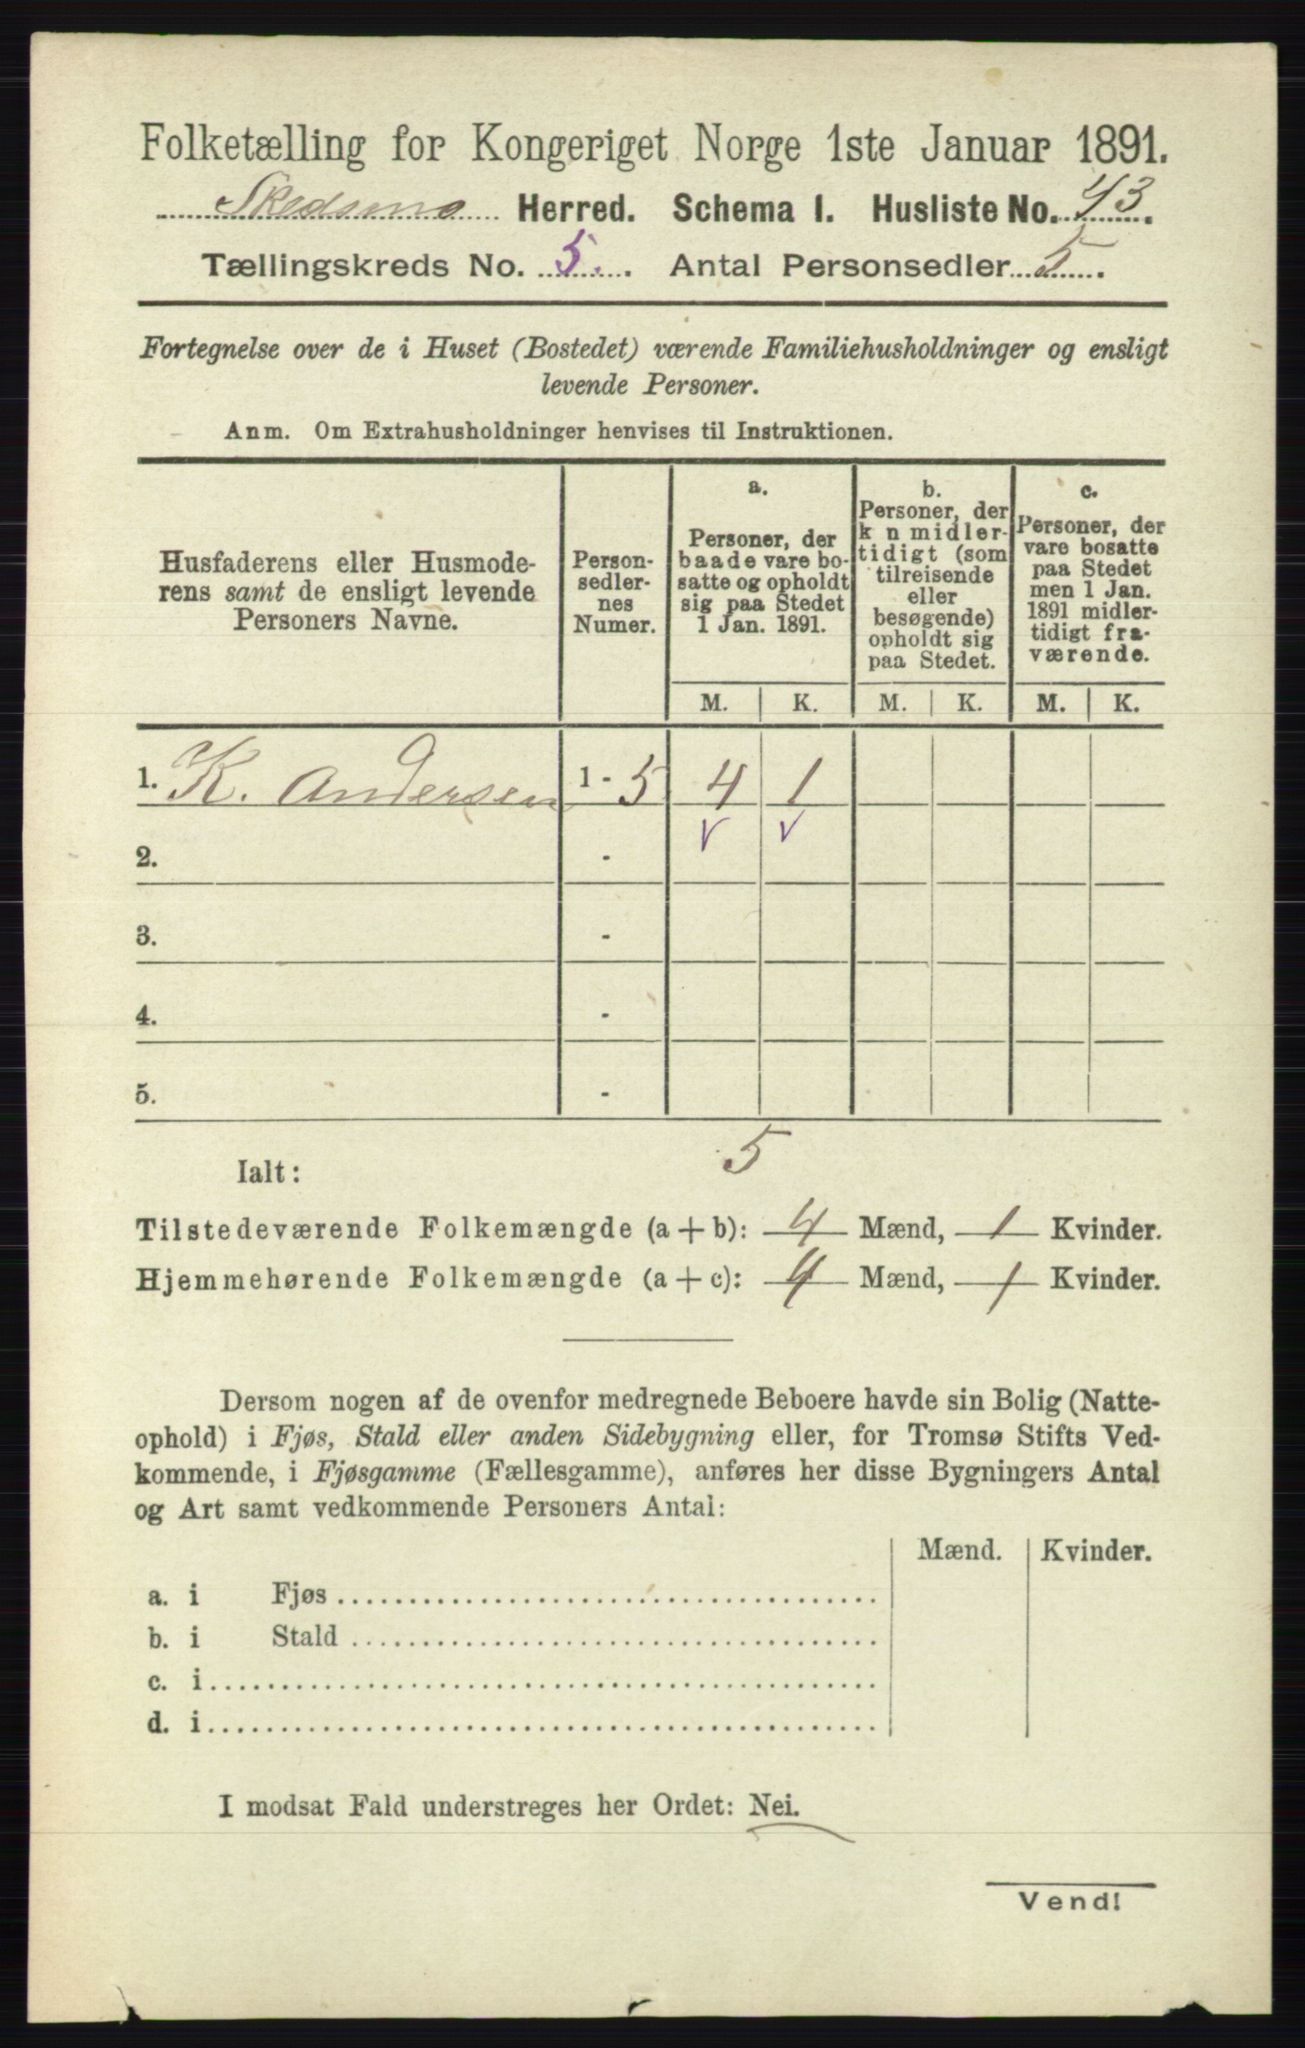 Folketælling for Kongeriget Norge 1ste Januar 1891.
Skedsmo Herred. Schema I. Husliste No. 43.
Tællingskreds No. 5. Antal Personsedler 5.
Fortegnelse over de i Huset (Bostedet) værende Familiehusholdninger og ensligt
levende Personer.
Anm. Om Extrahusholdninger henvises til Instruktionen.
Husfaderens eller Husmode-
rens samt de ensligt levende
Personers Navne.
Person-
sedler-
nes
Numer.
a.
Personer, der
baade vare bo-
satte og opholdt
sig paa Stedet
1 Jan. 1891.
b.
Personer, der
k n midler-
tidigt (som
tilreisende
eller
besøgende)
opholdt sig
paa Stedet.
c.
Personer, der
vare bosatte
paa Stedet
men 1 Jan.
1891 midler-
tidigt fra-
værende.
M. K. M. K. M. K.
1. K. Andersen 1 - 5 4 1
2. -
3. -
4. -
5. -
5
Ialt:
Tilstedeværende Folkemængde (a + b): 4 Mænd, 1 Kvinder.
Hjemmehørende Folkemængde (a + c): 4 Mænd, 1 Kvinder.
Dersom nogen af de ovenfor medregnede Beboere havde sin Bolig (Natte-
ophold) i Fjøs, Stald eller anden Sidebygning eller, for Tromsø Stifts Ved-
kommende, i Fjøsgamme (Fællesgamme), anføres her disse Bygningers Antal
og Art samt vedkommende Personers Antal:
Mænd. Kvinder.
a. i Fjøs
b. i Stald
c. i
d. i
I modsat Fald understreges her Ordet: Nei.
Vend!